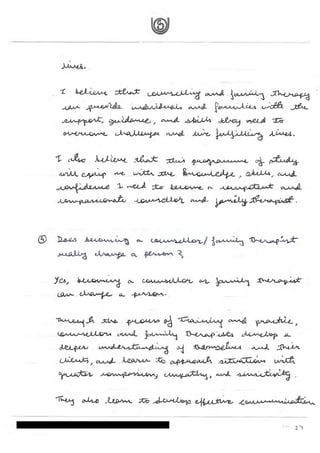 5
lives.
I believe that counselling and family therapy
can provide individuals and families with the
support, guidance, and skills they need to
overcome challenges and live fulfilling lives.
I also believe that this programme of study
will equip me with the knowledge, skills, and
confidence I need to become a competent and
compassionate counsellor and family therapist.
5 Does becoming a counsellor/family therapist
really change a person?
Yes, becoming a counsellor or family therapist
can change a person.
Through the process of training and practice,
counsellors and family therapists develop a
deeper understanding of themselves and their
clients, and learn to approach situations with
greater compassion, empathy, and sensitivity.
They also learn to develop effective communication